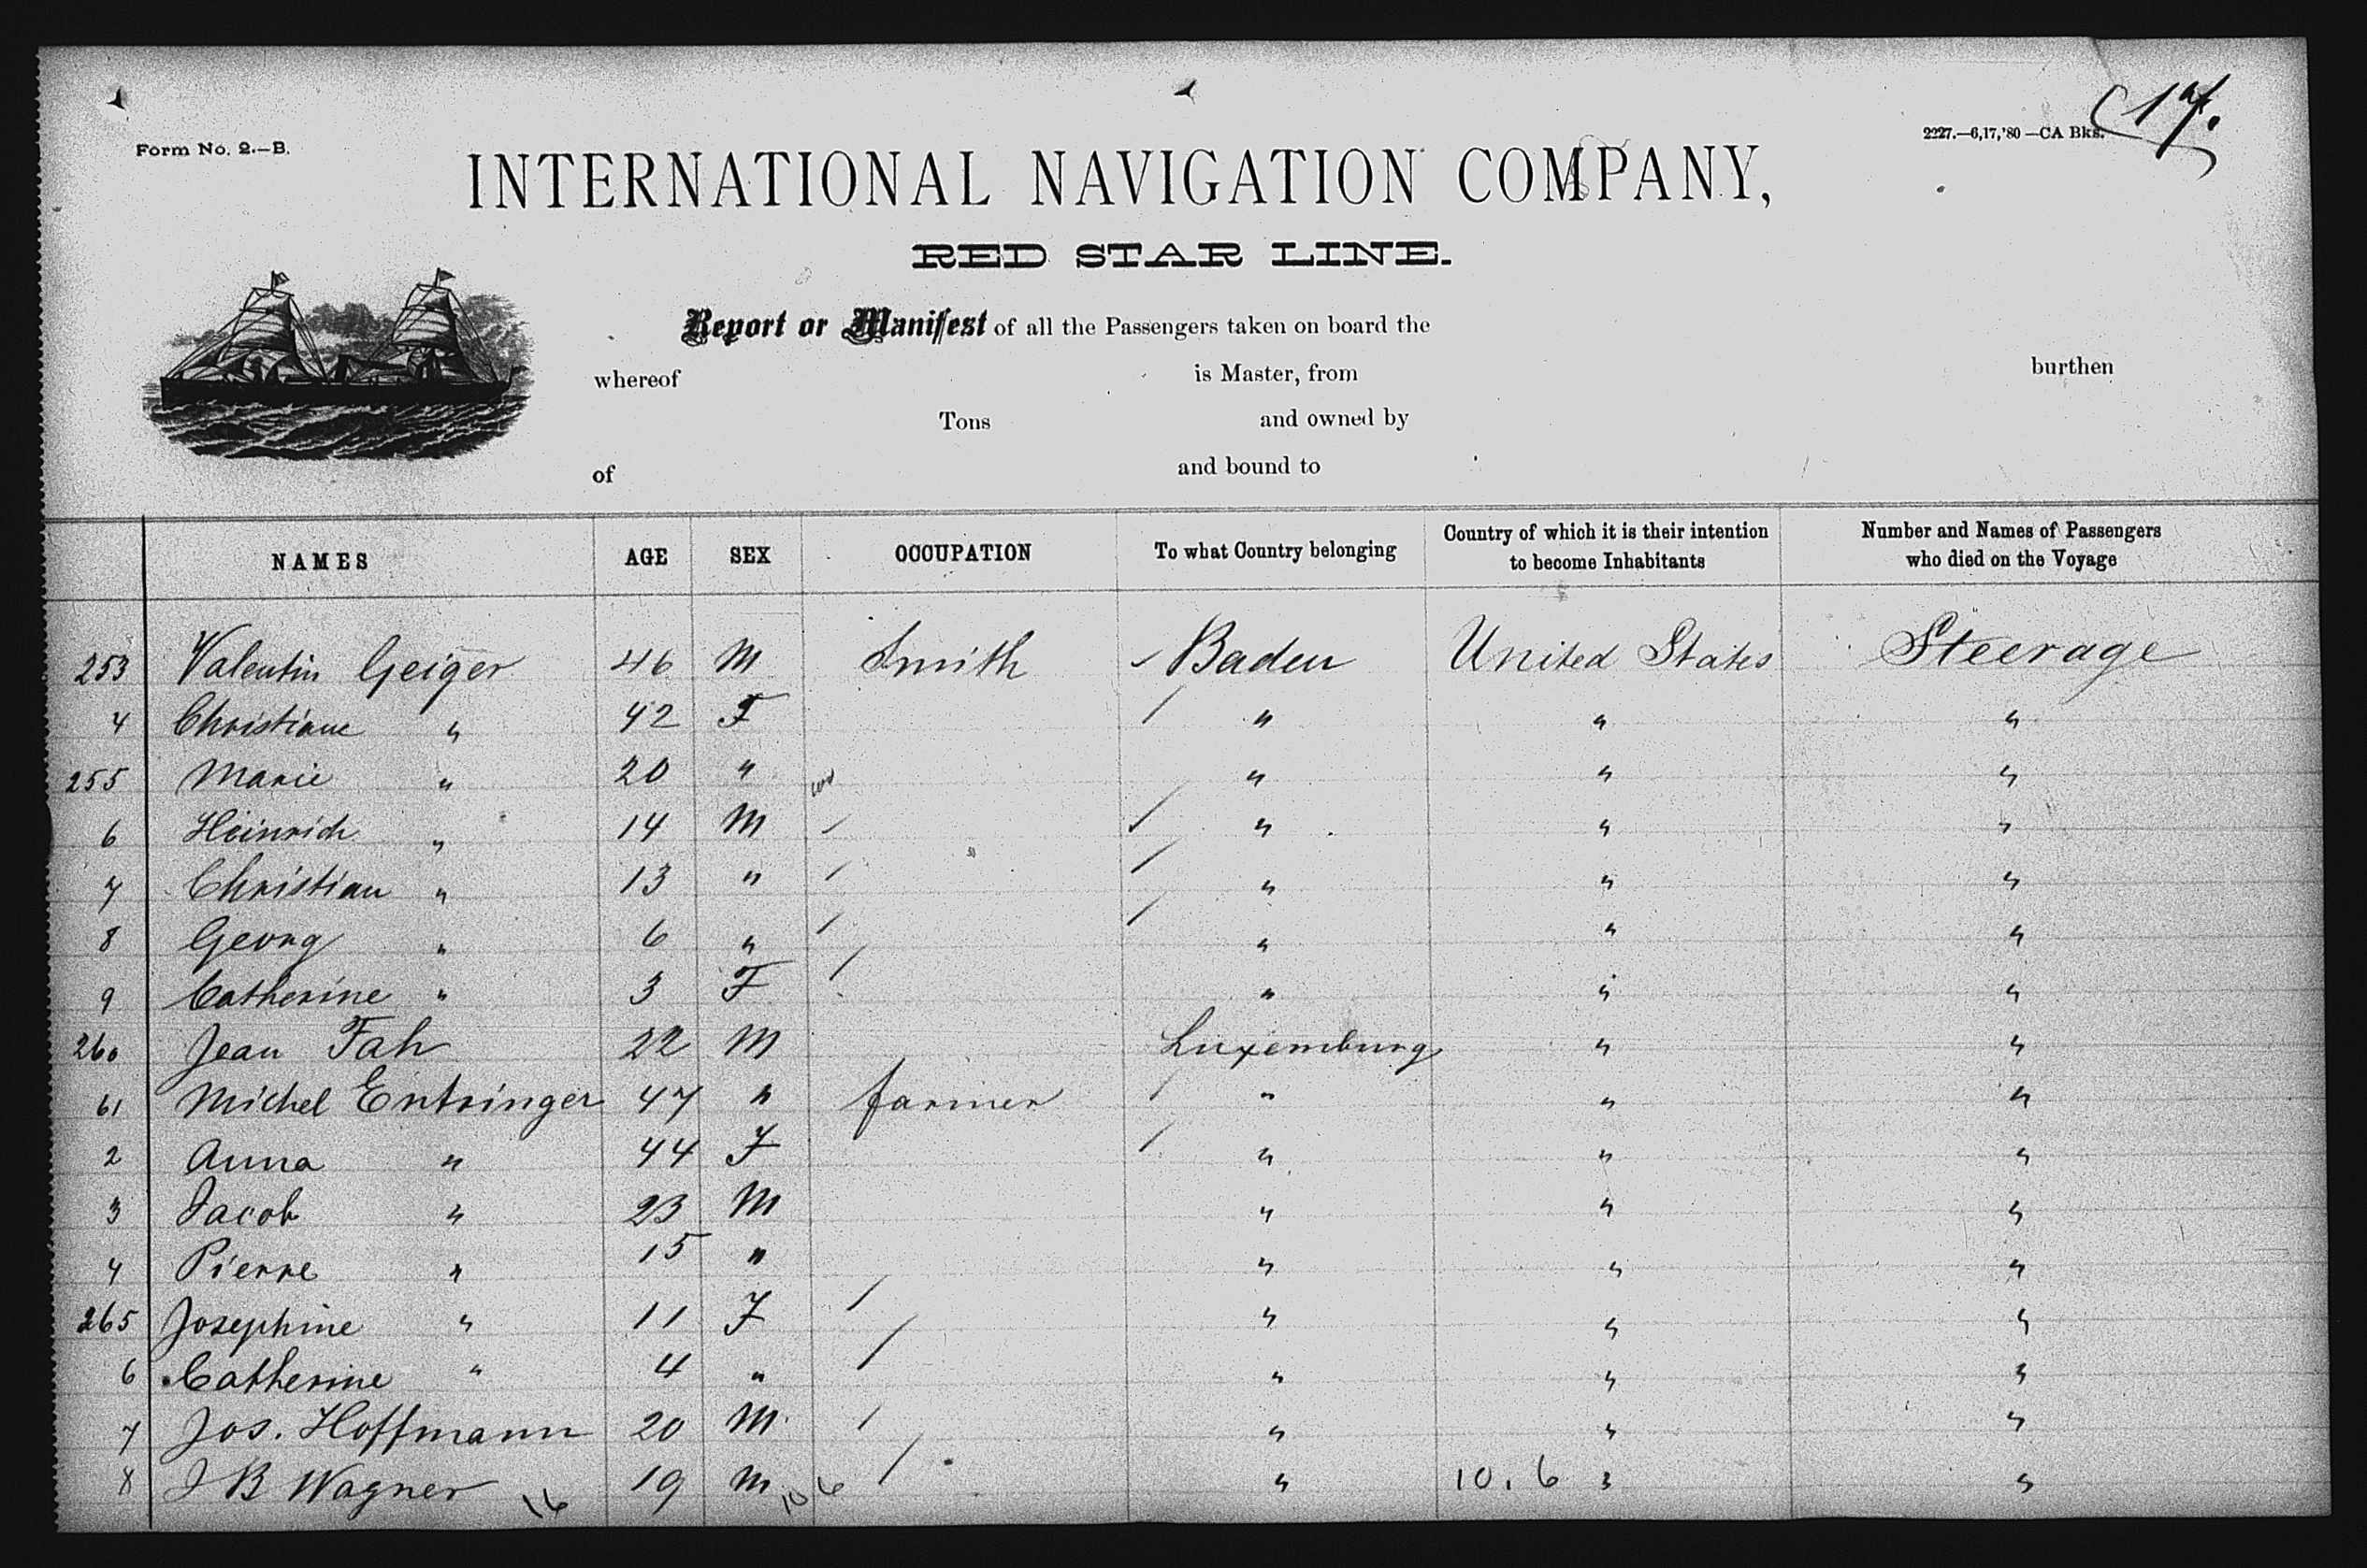 17.
Form No. 2.—B.
2227.—6,17,'80—CA Bks.
INTERNATIONAL NAVIGATION COMPANY,
RED STAR LINE.
Report or Manifest of all the Passengers taken on board the
whereof is Master, from burthen
Tons and owned by
of and bound to
NAMES AGE SEX OCCUPATION To what Country belonging Country of which it is their intention to become Inhabitants Number and Names of Passengers who died on the Voyage
253 Valentin Geiger 46 M Smith Baden United States Steerage
4 Christiane " 42 F " " "
255 Marie " 20 " " " "
6 Heinrich " 14 M " " "
7 Christian " 13 " " " "
8 Georg " 6 " " " "
9 Catherine " 3 F " " "
260 Jean Fah 22 M Luxemburg " "
61 Michel Entringer 47 " farmer " " "
2 Anna " 44 F " " "
3 Jacob " 23 M " " "
4 Pierre " 15 " " " "
265 Josephine " 11 F " " "
6 Catherine " 4 " " " "
7 Jos. Hoffmann 20 M " " "
8 J B Wagner 16 19 M 10 6 " 10. 6 " "